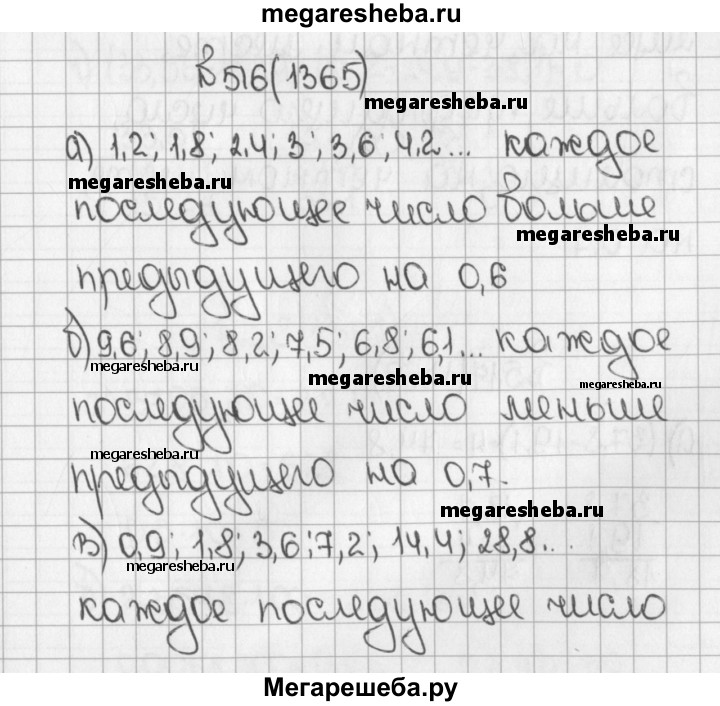 megaresheba.ru
№516(1365)
megaresheba.ru
а) 1,2; 1,8; 2,4; 3; 3,6; 4,2... каждое
megaresheba.ru
последующее число больше
megaresheba.ru
предыдущего на 0,6
б) 9,6; 8,9; 8,2; 7,5; 6,8; 6,1... каждое
megaresheba.ru
megaresheba.ru
megaresheba.ru
последующее число меньше
megaresheba.ru
предыдущего на 0,7.
megaresheba.ru
в) 0,9; 1,8; 3,6; 7,2; 14,4; 28,8...
megaresheba.ru
каждое последующее число
Мегарешеба.ру